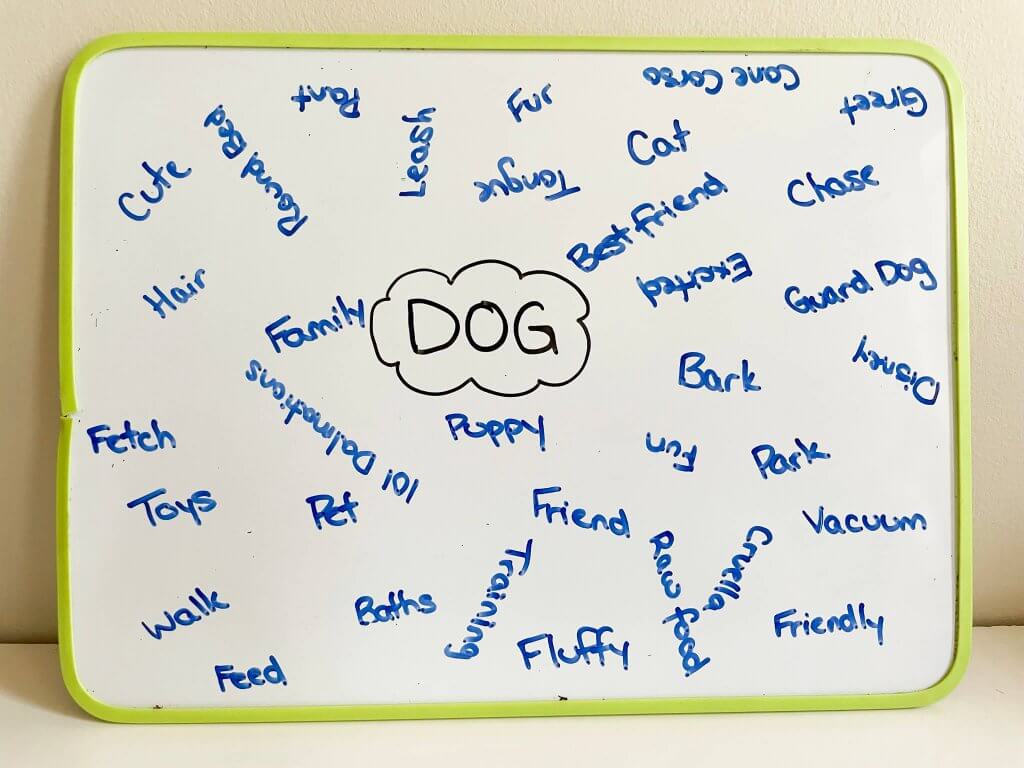 Pant
Fur
Cane Corso
Greet
Round Bed
Leash
Cat
Cute
Tongue
Chase
Best friend
Hair
Excited
Guard Dog
Family
DOG
Bark
Disney
101 Dalmations
Puppy
Fetch
Fun
Park
Toys
Pet
Friend
Vacuum
Training
Raw food
Cruella
Walk
Baths
Friendly
Fluffy
Feed